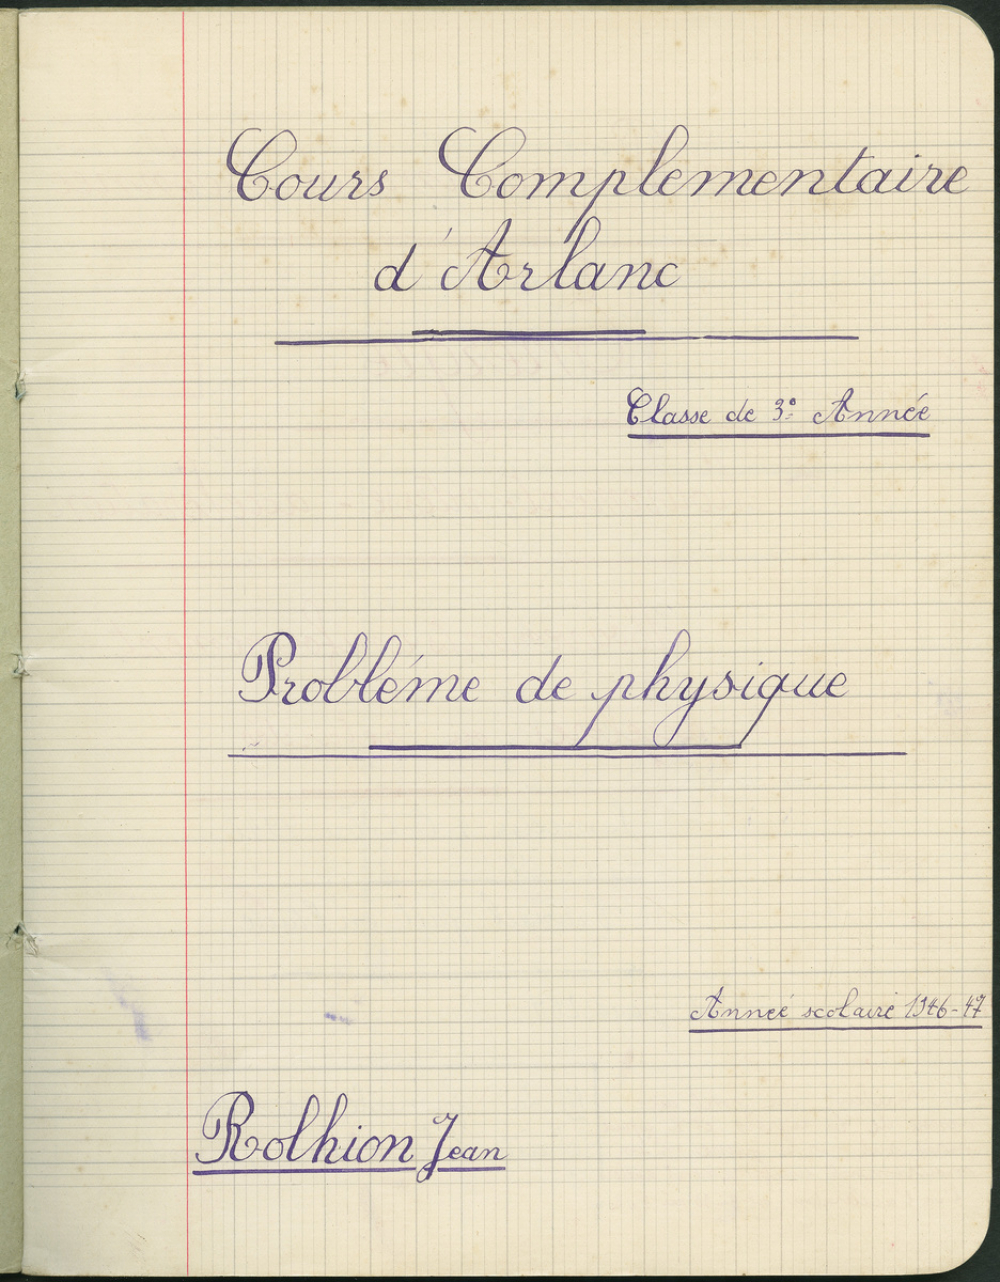 Cours Complementaire
d'Arlanc
Classe de 3e Année
Probléme de physique
Année scolaire 1946-47
Rolhion Jean